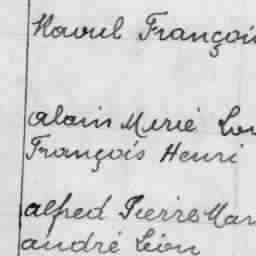 Raoul François
alain Marié Lou
François Henri
alfred Pierre Mar
andré Léon